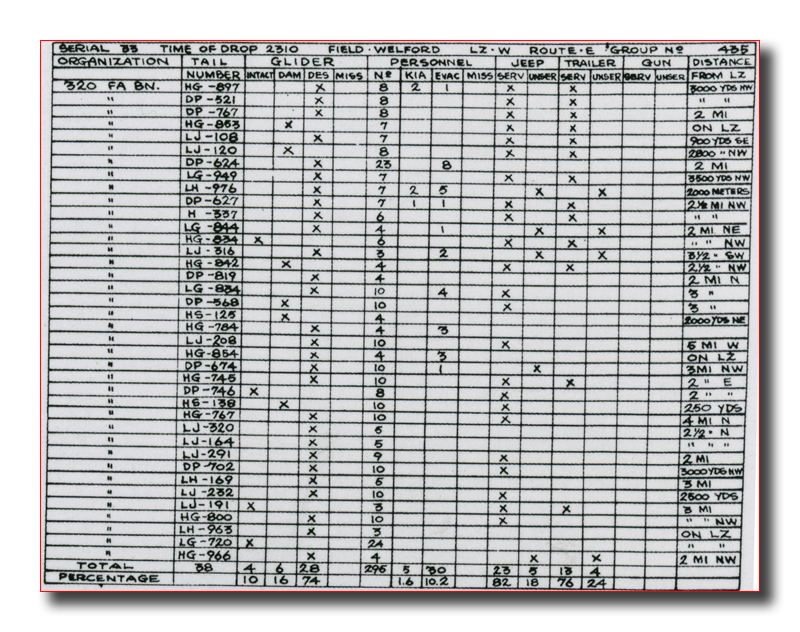 SERIAL 33 TIME OF DROP 2310 FIELD · WELFORD LZ · W ROUTE · E GROUP Nº 435
ORGANIZATION TAIL GLIDER PERSONNEL JEEP TRAILER GUN DISTANCE
NUMBER INTACT DAM DES MISS Nº KIA EVAC MISS SERV UNSER SERV UNSER SERV UNSER FROM LZ
320 FA BN. HG -897 X 8 2 1 X X 3000 YDS NW
" DP -521 X 8 X X " "
" DP -767 X 8 X X 2 MI
" HG -853 X 7 X X ON LZ
" LJ -108 X 7 X X 900 YDS SE
" LJ -120 X 8 X X 2800 " NW
" DP -624 X 23 8 2 MI
" LG -949 X 7 X X 3500 YDS NW
" LH -976 X 7 2 5 X X 2000 METERS
" DP -627 X 7 1 1 X X 2½ MI NW
" H -337 X 6 X X " "
" LG -844 X 4 1 X X 2 MI NE
" HG -834 X 6 X X " " NW
" LJ -316 X 3 2 X X 3 1/2 " SW
" HG -842 X 4 X X 2 1/2 " NW
" DP -819 X 4 2 MI N
" LG -834 X 10 4 X 3 "
" DP -568 X 10 X 3 "
" HS -125 X 4 2000 YDS NE
" HG -784 X 4 3
" LJ -208 X 10 X 5 MI W
" HG -854 X 4 3 ON LZ
" DP -674 X 10 1 X 3 MI NW
" HG -745 X 10 X X 2 " E
" DP -746 X 8 X 2 " "
" HS -138 X 10 X 250 YDS
" HG -767 X 10 X 4 MI N
" LJ -320 X 5 2 1/2 " N
" LJ -164 X 5 " " "
" LJ -291 X 9 X 2 MI
" DP -702 X 10 X 3000 YDS NW
" LH -169 X 5 3 MI
" LJ -232 X 10 X 2500 YDS
" LJ -191 X 3 X X 3 MI
" HG -800 X 10 X " " NW
" LH -963 X 3 ON LZ
" LG -720 X 24 " "
" HG -966 X 4 X X 2 MI NW
TOTAL 38 4 6 28 295 5 30 23 5 13 4
PERCENTAGE 10 16 74 1.6 10.2 82 18 76 24